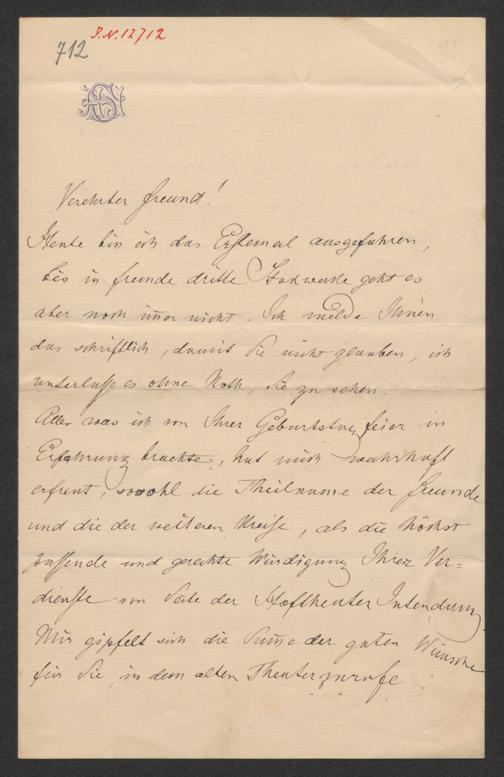 712
I.N. 12712
Verehrter Freund!
Heute bin ich das Erstemal ausgefahren,
bis in fremde dritte Stockwerke geht es
aber noch im̄er nicht. Ich melde Ihnen
das schriftlich, damit Sie nicht glauben, ich
unterlasse es ohne Noth, Sie zu sehen.
Alles was ich von Ihrer Geburtstagfeier in
Erfahrung brachte, hat mich wahrhaft
erfreut, sowohl die Theilname der Freunde
und die der weiteren Kreise, als die höchst
passende und gerechte Würdigung Ihrer Ver=
dienste von Seite der Hoftheater Intendanz.
Mir gipfelt sich die Sum̄e der guten Wünsche
für Sie, in dem alten Theaterzurufe